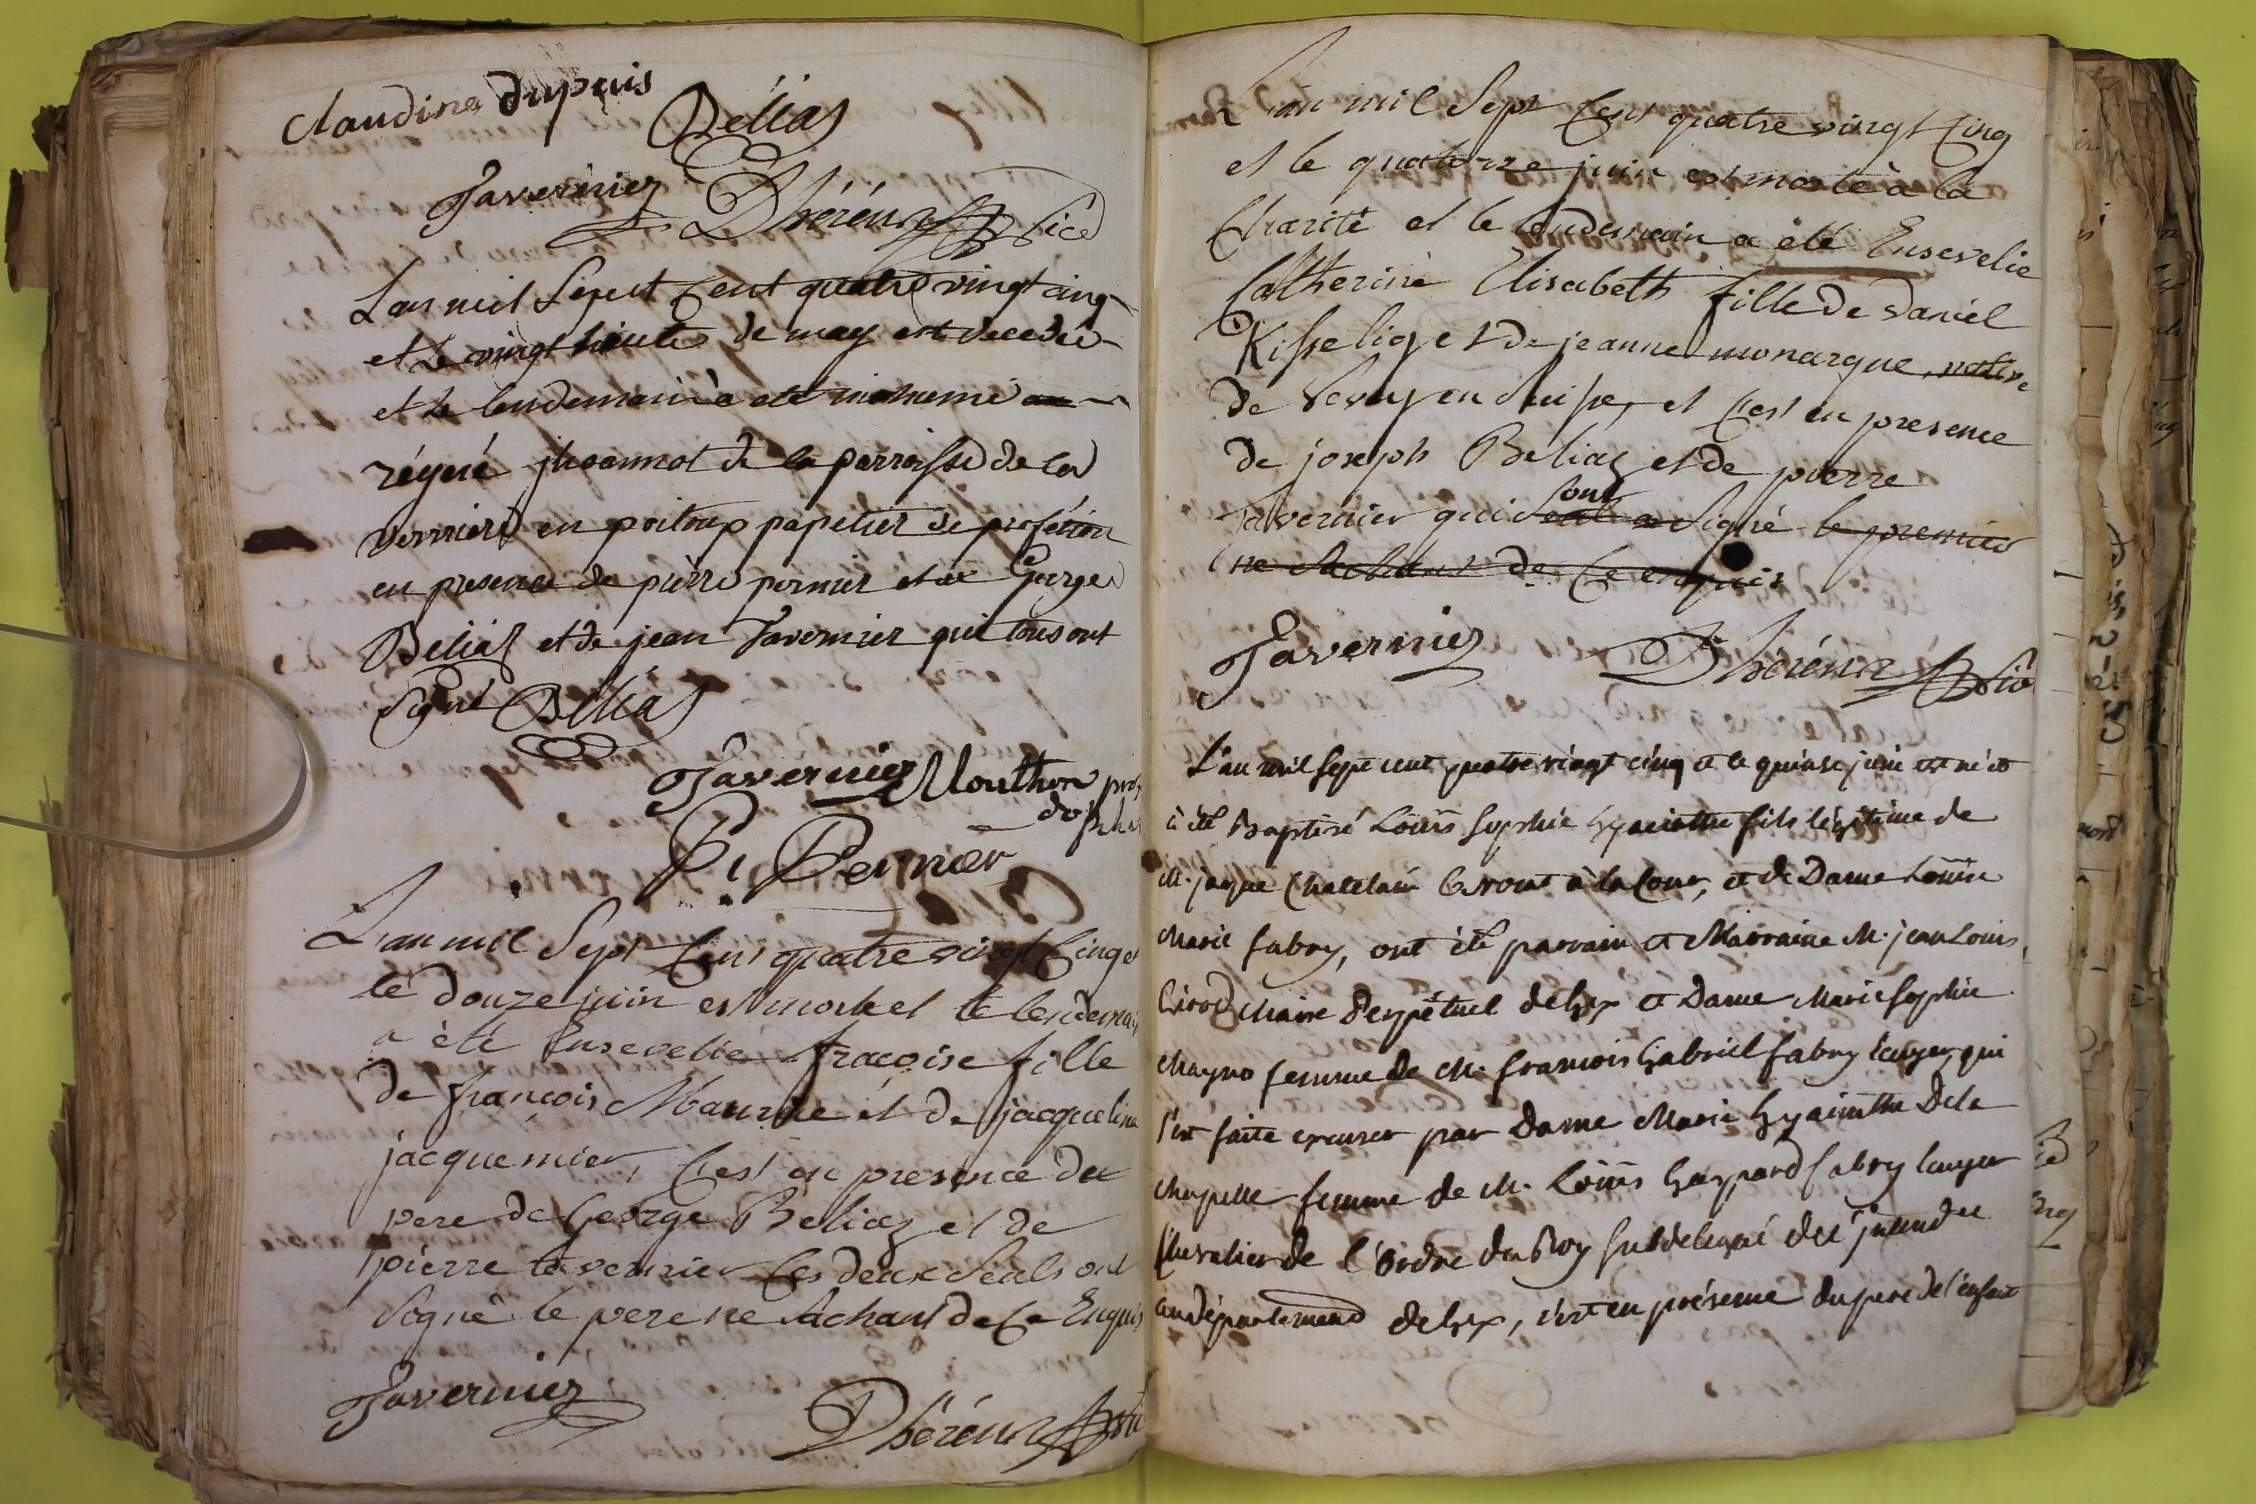 Claudine dupuis
Béliaz
Tavernier Dhéréns vice
Lan mil Sepest Cent quatre vingt cinq
et le vingt huite de may est decedee
et le lendemain à eté inhumé
régeré jhoannot de la parroisse de la
verriere en poitoup papetier de profession
en presence de pierre pernier et de George
Beliaz et de jean Tavernier qui tous ont
Signé Béliaz
Tavernier Mouthon
P. Pernier
L'an mil Sept Cens quatre vingt Cinq et
le douze juin est morte et le lendemain
a été Ensevelie fracoise fille
de françois Maurie et de jacqueline
jacquemier, C'est en presence du
pere de George Beliaz et de
pierre tavernier Ces deux Seuls ont
Signé le pere ne Sachant de Ce Enquis
Tavernier
Dhéréns vic
L'an mil Sept Cens quatre vingt Cinq
et le quatorze juin est morte à la
Charité et le lendemain a été Ensevelie
Catherine Elisabeth fille de daniel
Kisselig et de jeanne monarque, native
de Vevay en Suisse, et C'est en presence
de joseph Beliaz et de pierre
sont
Tavernier qui Seul a Signé le premier
ne Sachant de Ce enquis
Tavernier Dhéréns vic
L'an mil sept cent quatre vingt cinq et le quinse juin est né et
à été Baptisé Loüis Sophie hyacinthe fils légitime de
M. jaque Chatelain Avocat à la Cour, et de Dame Loüise
Marie fabry, ont été parrain et Marraine M. jean Louis
Girod Maire Perpétuel de Gex et Dame Marie Sophie
Mayno femme de M. francois Gabriel fabry Ecuyer, qui
s'est faite excuser par Dame Marie hyacinthe Dela
chapelle femme de M. Loüis Gaspard fabry Ecuyer
Chevalier de l'Ordre du Roy Subdelegué de l'jntendce
au département de Gex, c'est en présence du pere de l'enfant